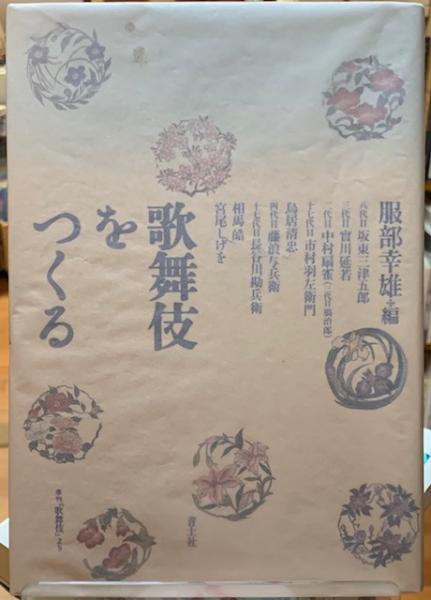 服部幸雄・編
八代目 坂東三津五郎
三代目 實川延若
二代目 中村扇雀(三代目鴈治郎)
十七代目 市村羽左衛門
鳥居清忠
四代目 藤浪与兵衛
十七代目 長谷川勘兵衛
相馬 皓
宮尾しげを
歌舞伎
を
つくる
青土社
季刊『歌舞伎』より